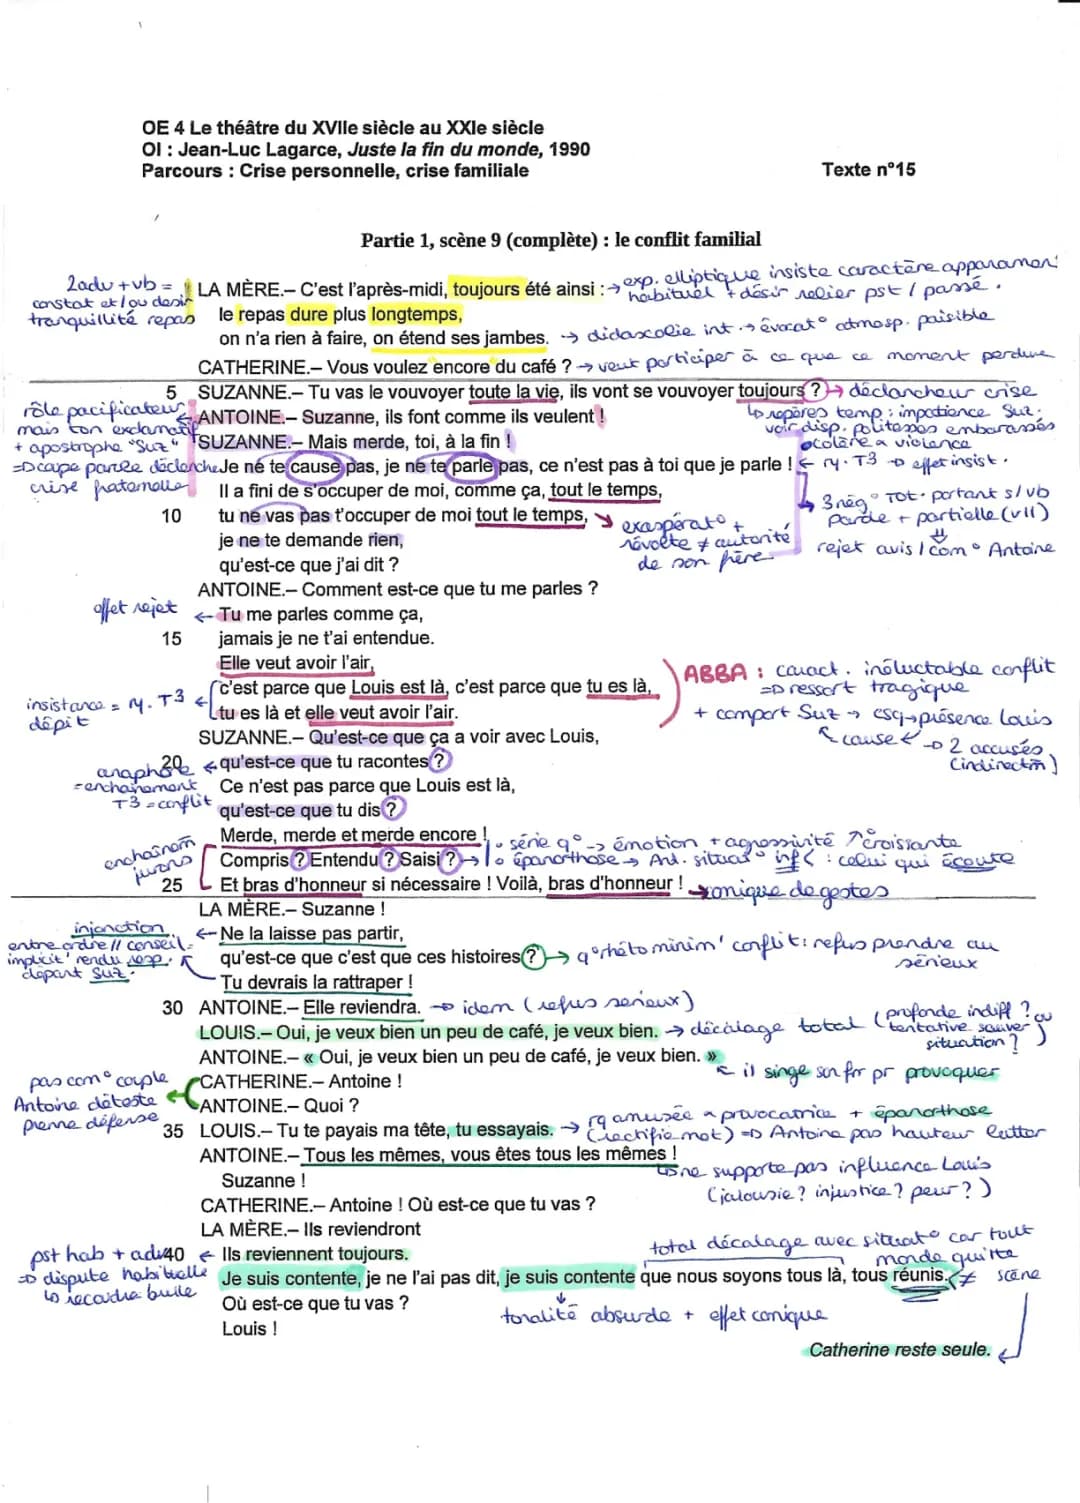 OE 4 Le théâtre du XVIIe siècle au XXIe siècle
OI : Jean-Luc Lagarce, Juste la fin du monde, 1990
Parcours : Crise personnelle, crise familiale
Texte n°15
Partie 1, scène 9 (complète) : le conflit familial
2adv + vb =
constat et/ou desir
tranquillité repas
LA MÈRE.– C'est l'après-midi, toujours été ainsi :
→ exp. elliptique insiste caractère apparamen'
habituel + désir relier pst / passé.
le repas dure plus longtemps,
on n'a rien à faire, on étend ses jambes.
→ didascalie int. → évocat° atmosp. paisible
CATHERINE.– Vous voulez encore du café ?
→ veut participer à ce que ce moment perdure
5 SUZANNE.– Tu vas le vouvoyer toute la vie, ils vont se vouvoyer toujours ?
→ déclancheur crise
rôle pacificateur
mais ton exclamatif
+ apostrophe "Suz"
=> cape parole déclenche
crise fraternelle
↳ repères temp : impatience Suz.
voir disp. politesses embarassés
colère a violence
ANTOINE.– Suzanne, ils font comme ils veulent !
SUZANNE.– Mais merde, toi, à la fin !
Je ne te cause pas, je ne te parle pas, ce n'est pas à toi que je parle !
← ry. T3 → effet insist.
Il a fini de s'occuper de moi, comme ça, tout le temps,
↳ 3 nég° TOT. portant s/ vb
parole + partielle (v11)
⇓
rejet avis / com° Antoine
10 tu ne vas pas t'occuper de moi tout le temps,
exasperat° +
révolte ≠ autorité
de son frère
je ne te demande rien,
qu'est-ce que j'ai dit ?
ANTOINE.– Comment est-ce que tu me parles ?
effet rejet ← Tu me parles comme ça,
15 jamais je ne t'ai entendue.
Elle veut avoir l'air,
c'est parce que Louis est là, c'est parce que tu es là,
tu es là et elle veut avoir l'air.
insistance = ry. T3
dépit
ABBA : caract. inéluctable conflit
=> ressort tragique
+ comport Suz → csq → présence Louis
↖ cause ↙ → 2 accusés
(indirectm)
SUZANNE.– Qu'est-ce que ça a voir avec Louis,
20 qu'est-ce que tu racontes ?
Ce n'est pas parce que Louis est là,
qu'est-ce que tu dis ?
anaphore
= enchainement
T3 = conflit
Merde, merde et merde encore !
Compris ? Entendu ? Saisi ?
enchaînem
jurons
série q° → émotion + agressivité ↗ croissante
épanorthose → Ant. situat° inf : celui qui écoute
25 Et bras d'honneur si nécessaire ! Voilà, bras d'honneur !
→ comique de gestes
LA MÈRE.– Suzanne !
injonction
entre ordre // conseil
implicit' rendu resp.
départ Suz.
Ne la laisse pas partir,
qu'est-ce que c'est que ces histoires ?
→ q° rhéto minim' conflit : refus prendre au
sérieux
Tu devrais la rattraper !
30 ANTOINE.– Elle reviendra.
→ idem (refus serieux)
LOUIS.– Oui, je veux bien un peu de café, je veux bien.
→ décalage total (profonde indiff ? ou
tentative sauver
situation ?)
ANTOINE.– « Oui, je veux bien un peu de café, je veux bien. »
↖ il singe son fr pr provoquer
CATHERINE.– Antoine !
ANTOINE.– Quoi ?
pas com° couple
Antoine déteste
prenne défense
35 LOUIS.– Tu te payais ma tête, tu essayais.
→ rq amusée a provocatrice + épanorthose
(rectifie mot) => Antoine pas hauteur lutter
ANTOINE.– Tous les mêmes, vous êtes tous les mêmes !
↳ ne supporte pas influence Louis
(jalousie ? injustice ? peur ?)
Suzanne !
CATHERINE.– Antoine ! Où est-ce que tu vas ?
LA MÈRE.– Ils reviendront
40 Ils reviennent toujours.
pst hab + adv
=> dispute habituelle
total décalage avec situat° car tout
monde quitte
scène
Je suis contente, je ne l'ai pas dit, je suis contente que nous soyons tous là, tous réunis.
≠
Où est-ce que tu vas ?
tonalité absurde + effet comique
Louis !
Catherine reste seule.